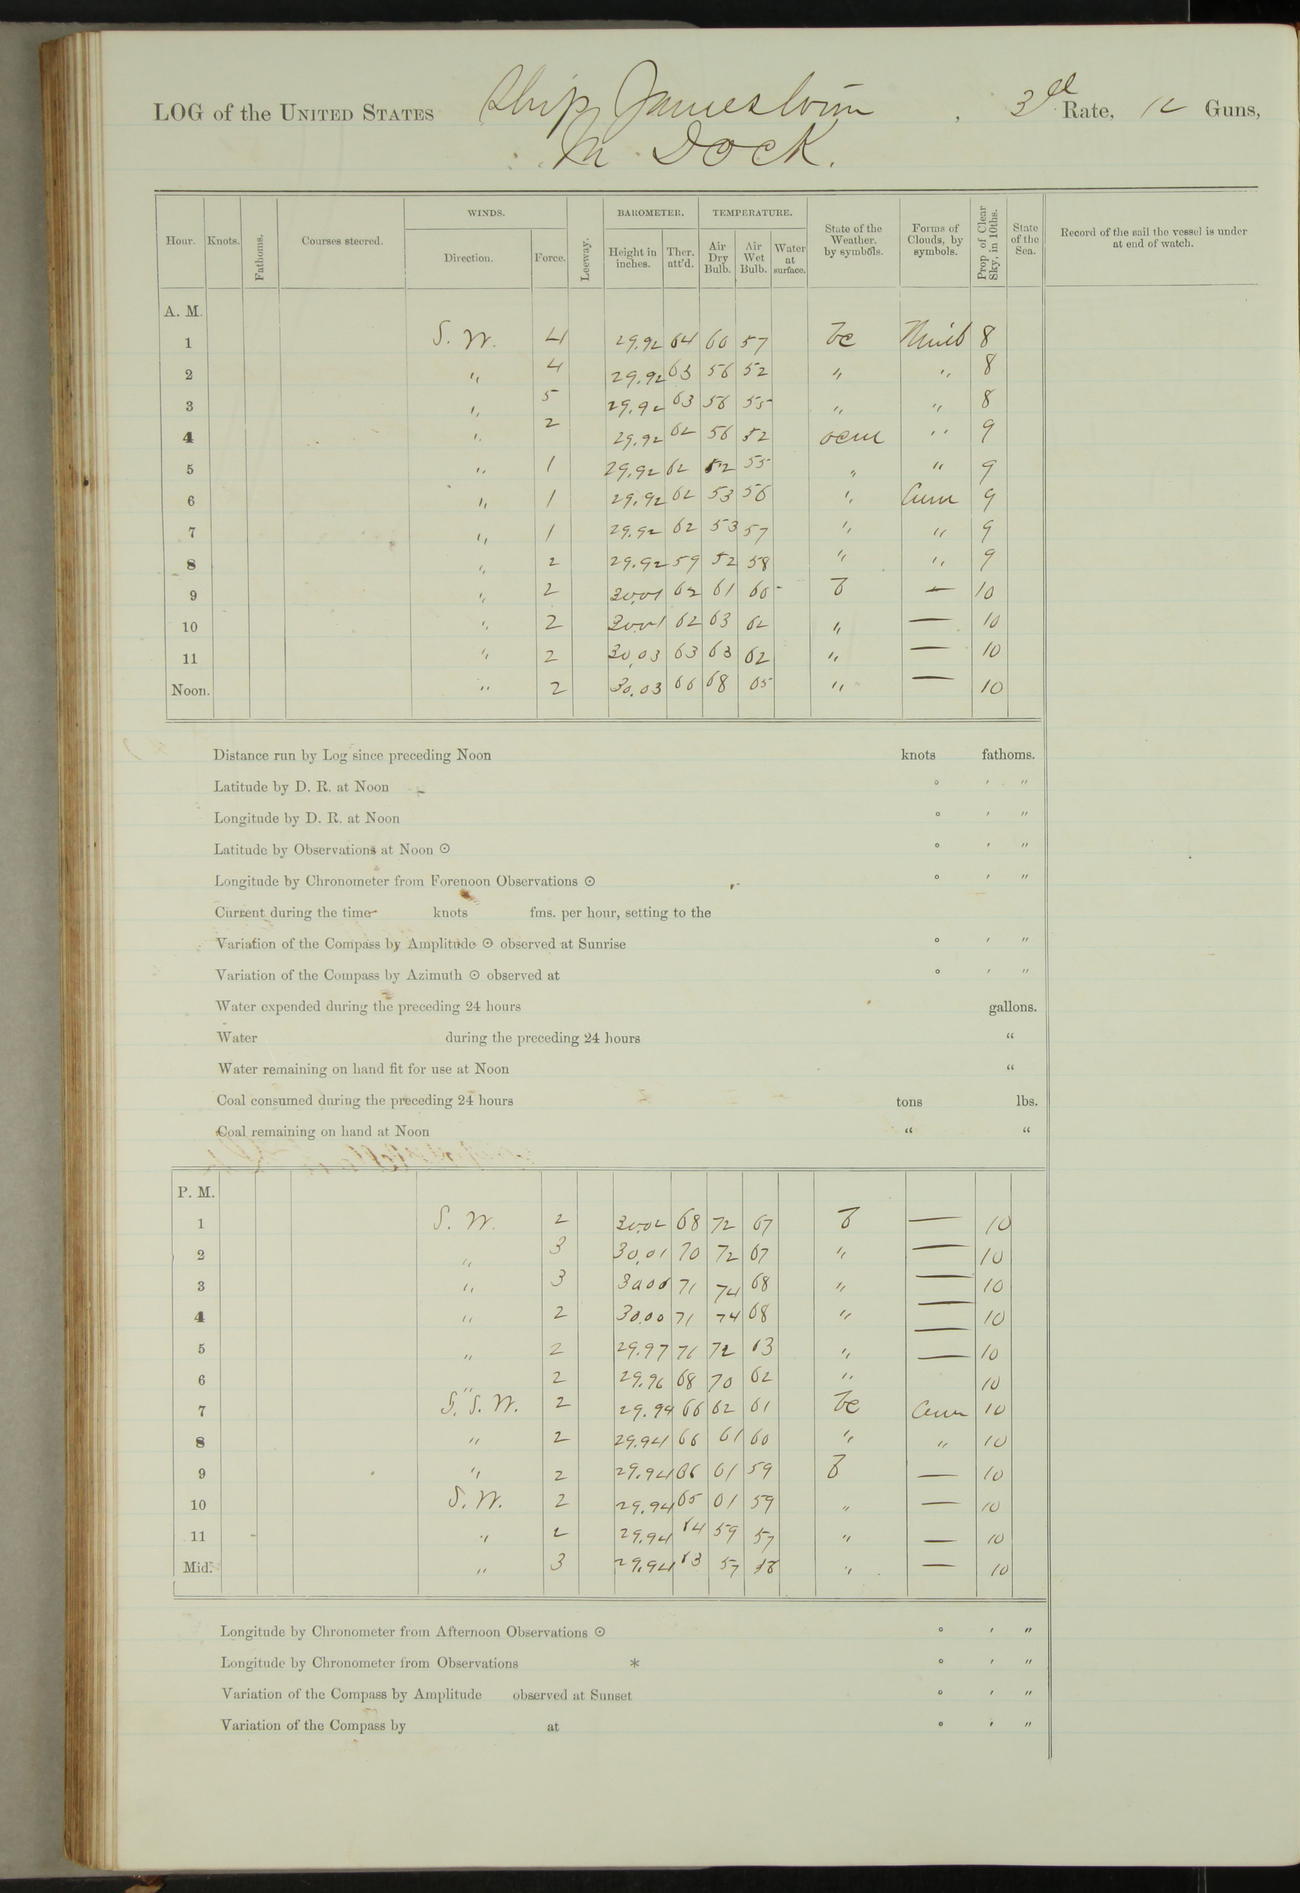 LOG of the UNITED STATES Ship Jamestown, 3rd Rate, 12 Guns,
In Dock.
Hour. Knots. Fathoms. Courses steered. WINDS. Direction. Force. Leeway. BAROMETER. Height in inches. Ther. att'd. TEMPERATURE. Air Dry Bulb. Air Wet Bulb. Water at surface. State of the Weather, by symbols. Forms of Clouds, by symbols. Prop. of Clear Sky, in 10ths. State of the Sea. Record of the sail the vessel is under at end of watch.
A. M.
1 S. W. 4 29.92 64 60 57 bc 8
2 " 4 29.92 63 56 52 " " 8
3 " 5 29.92 63 56 55 " " 8
4 " 2 29.92 62 56 52 ocm " 9
5 " 1 29.92 62 52 55 " " 9
6 " 1 29.92 62 53 56 " Cum 9
7 " 1 29.92 62 53 57 " " 9
8 " 2 29.92 59 52 58 " " 9
9 " 2 30.01 62 61 60 b — 10
10 " 2 30.01 62 63 62 " — 10
11 " 2 30.03 63 63 62 " — 10
Noon. " 2 30.03 66 68 65 " — 10
Distance run by Log since preceding Noon knots fathoms.
Latitude by D. R. at Noon ° ' "
Longitude by D. R. at Noon ° ' "
Latitude by Observations at Noon ⊙ ° ' "
Longitude by Chronometer from Forenoon Observations ⊙ ° ' "
Current during the time knots fms. per hour, setting to the
Variation of the Compass by Amplitude ⊙ observed at Sunrise ° ' "
Variation of the Compass by Azimuth ⊙ observed at ° ' "
Water expended during the preceding 24 hours gallons.
Water during the preceding 24 hours "
Water remaining on hand fit for use at Noon "
Coal consumed during the preceding 24 hours tons lbs.
Coal remaining on hand at Noon " "
P. M.
1 S. W. 2 30.02 68 72 67 b — 10
2 " 3 30.01 70 72 67 " — 10
3 " 3 30.00 71 74 68 " — 10
4 " 2 30.00 71 74 68 " — 10
5 " 2 29.97 71 72 63 " — 10
6 " 2 29.96 68 70 62 " — 10
7 S. S. W. 2 29.94 66 62 61 bc Cum 10
8 " 2 29.94 66 61 60 " " 10
9 " 2 29.94 66 61 59 b — 10
10 S. W. 2 29.94 65 61 59 " — 10
11 " 2 29.94 64 59 57 " — 10
Mid. " 3 29.94 63 57 " — 10
Longitude by Chronometer from Afternoon Observations ⊙ ° ' "
Longitude by Chronometer from Observations * ° ' "
Variation of the Compass by Amplitude observed at Sunset ° ' "
Variation of the Compass by at ° ' "